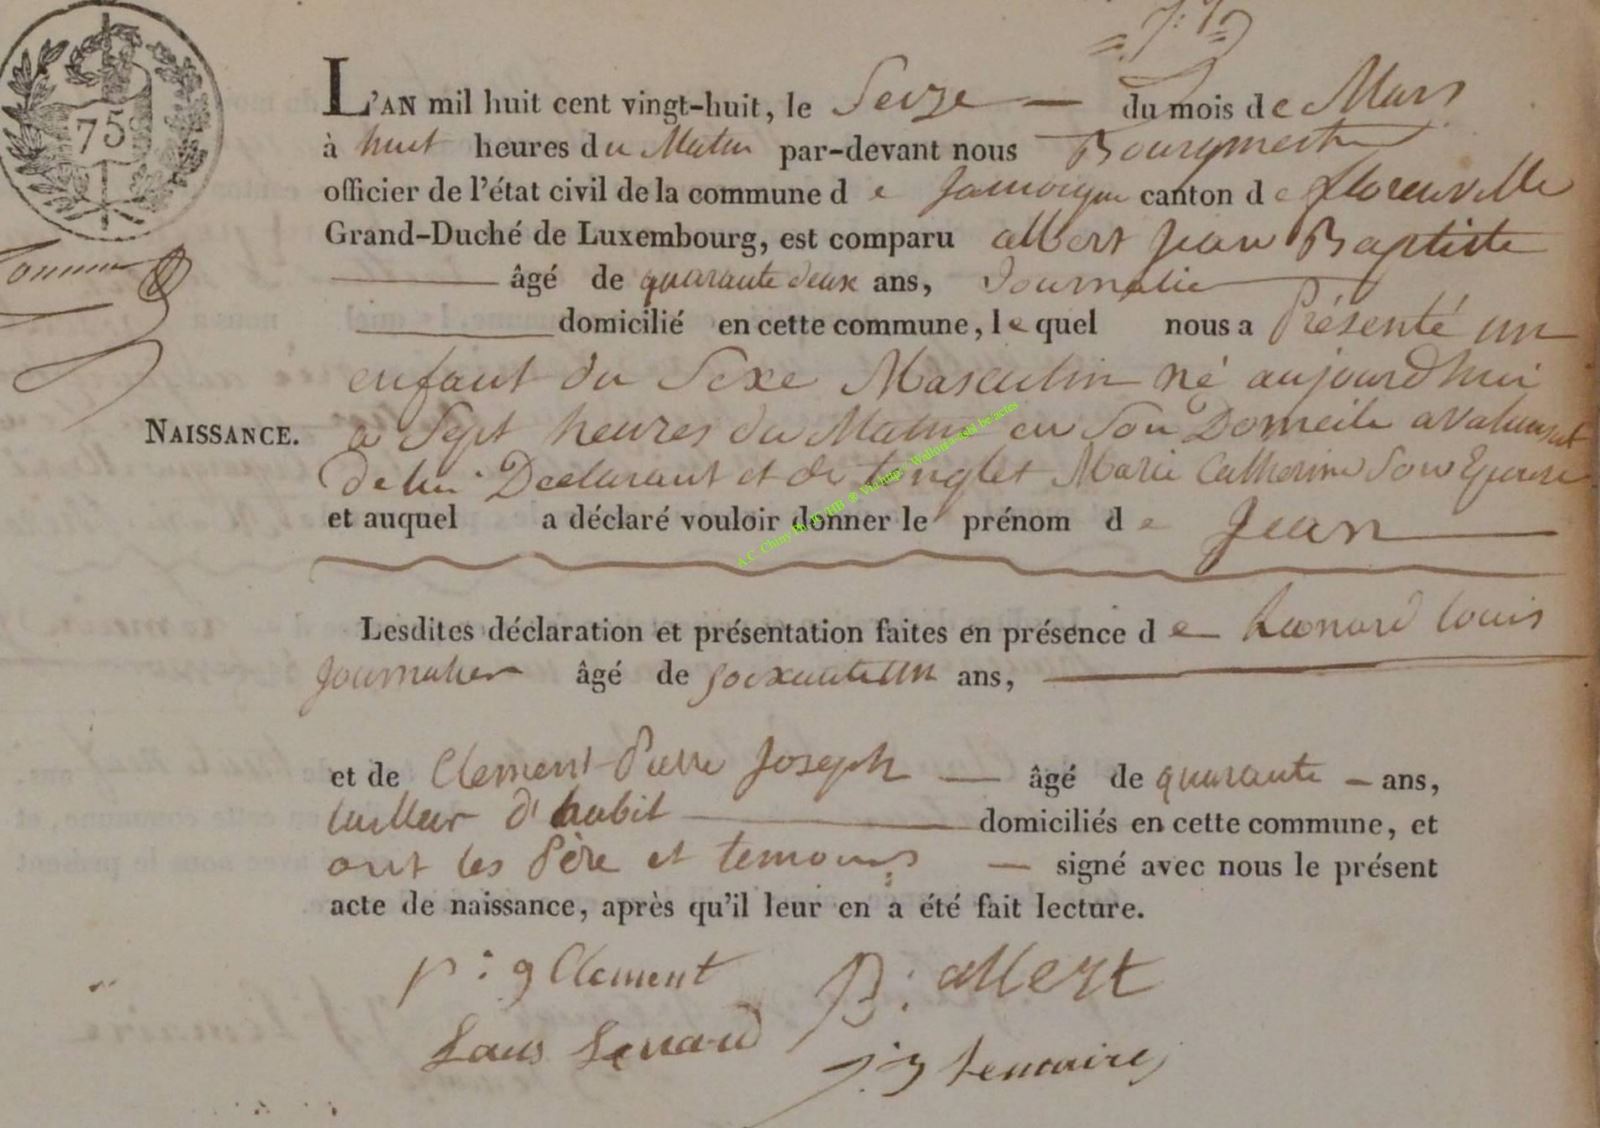 75
L'AN mil huit cent vingt-huit, le Seize du mois de Mars
à huit heures du Matin par-devant nous Bourgmestre
officier de l'état civil de la commune de Jamoigne canton de florenville
Grand-Duché de Luxembourg, est comparu albert Jean Baptiste
âgé de quarante deux ans, Journalier
domicilié en cette commune, lequel nous a Présenté un
enfant du Sexe Masculin né aujourdhui
NAISSANCE. a Sept heures du Matin en Son Domicile a valansart
De lui Declarant et de tinglet Marie Catherine Son Epouse
et auquel a déclaré vouloir donner le prénom de Jean
A.C. Chiny Ph. JC HB ® Via http:// Wallonia-asbl.be/actes
Lesdites déclaration et présentation faites en présence de Leonard louis
Journalier âgé de soixante un ans,
et de Clement Pierre Joseph âgé de quarante ans,
tailleur d'habit domiciliés en cette commune, et
ont les Père et temoins signé avec nous le présent
acte de naissance, après qu'il leur en a été fait lecture.
p: j Clement B: albert
Louis Lenard J: j Lemaire